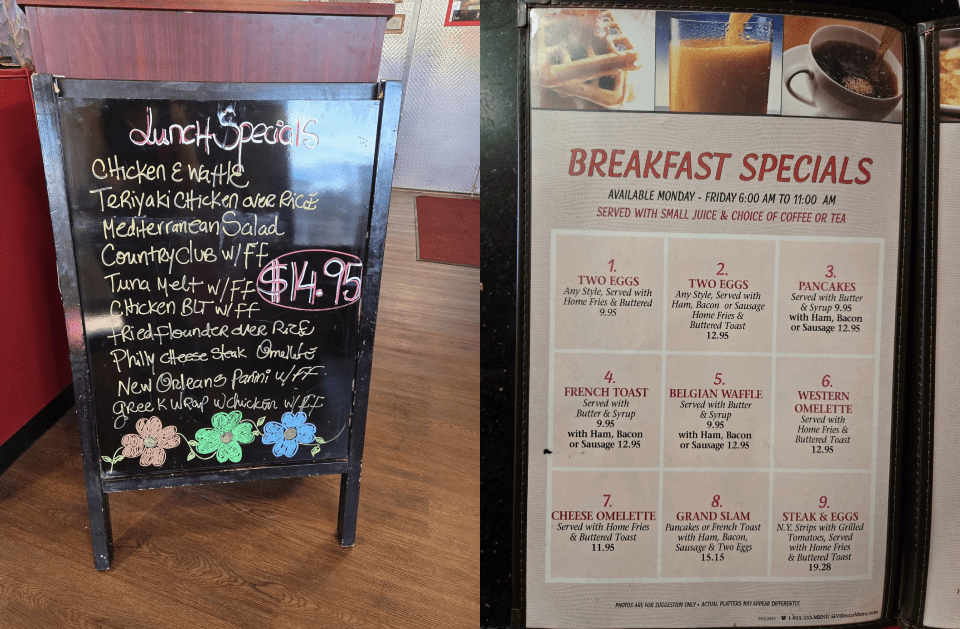 Lunch Specials
Chicken & Waffle
Teriyaki Chicken over Rice
Mediterranean Salad
Country Club w/FF
Tuna Melt w/FF
$14.95
Chicken BLT w/FF
Fried Flounder over Rice
Philly Cheese Steak Omelette
New Orleans Panini w/FF
Greek Wrap w/chicken w/FF
BREAKFAST SPECIALS
AVAILABLE MONDAY - FRIDAY 6:00 AM TO 11:00 AM
SERVED WITH SMALL JUICE & CHOICE OF COFFEE OR TEA
1.
TWO EGGS
Any Style, Served with
Home Fries & Buttered
9.95
2.
TWO EGGS
Any Style, Served with
Ham, Bacon or Sausage
Home Fries &
Buttered Toast
12.95
3.
PANCAKES
Served with Butter
& Syrup 9.95
with Ham, Bacon
or Sausage 12.95
4.
FRENCH TOAST
Served with
Butter & Syrup
9.95
with Ham, Bacon
or Sausage 12.95
5.
BELGIAN WAFFLE
Served with Butter
& Syrup
9.95
with Ham, Bacon
or Sausage 12.95
6.
WESTERN
OMELETTE
Served with
Home Fries &
Buttered Toast
12.95
7.
CHEESE OMELETTE
Served with Home Fries
& Buttered Toast
11.95
8.
GRAND SLAM
Pancakes or French Toast
with Ham, Bacon,
Sausage & Two Eggs
15.15
9.
STEAK & EGGS
N.Y. Strips with Grilled
Tomatoes, Served
with Home Fries
& Buttered Toast
19.28
PHOTOS ARE FOR SUGGESTION ONLY • ACTUAL PLATTERS MAY APPEAR DIFFERENTLY.
1-855-355-MENU